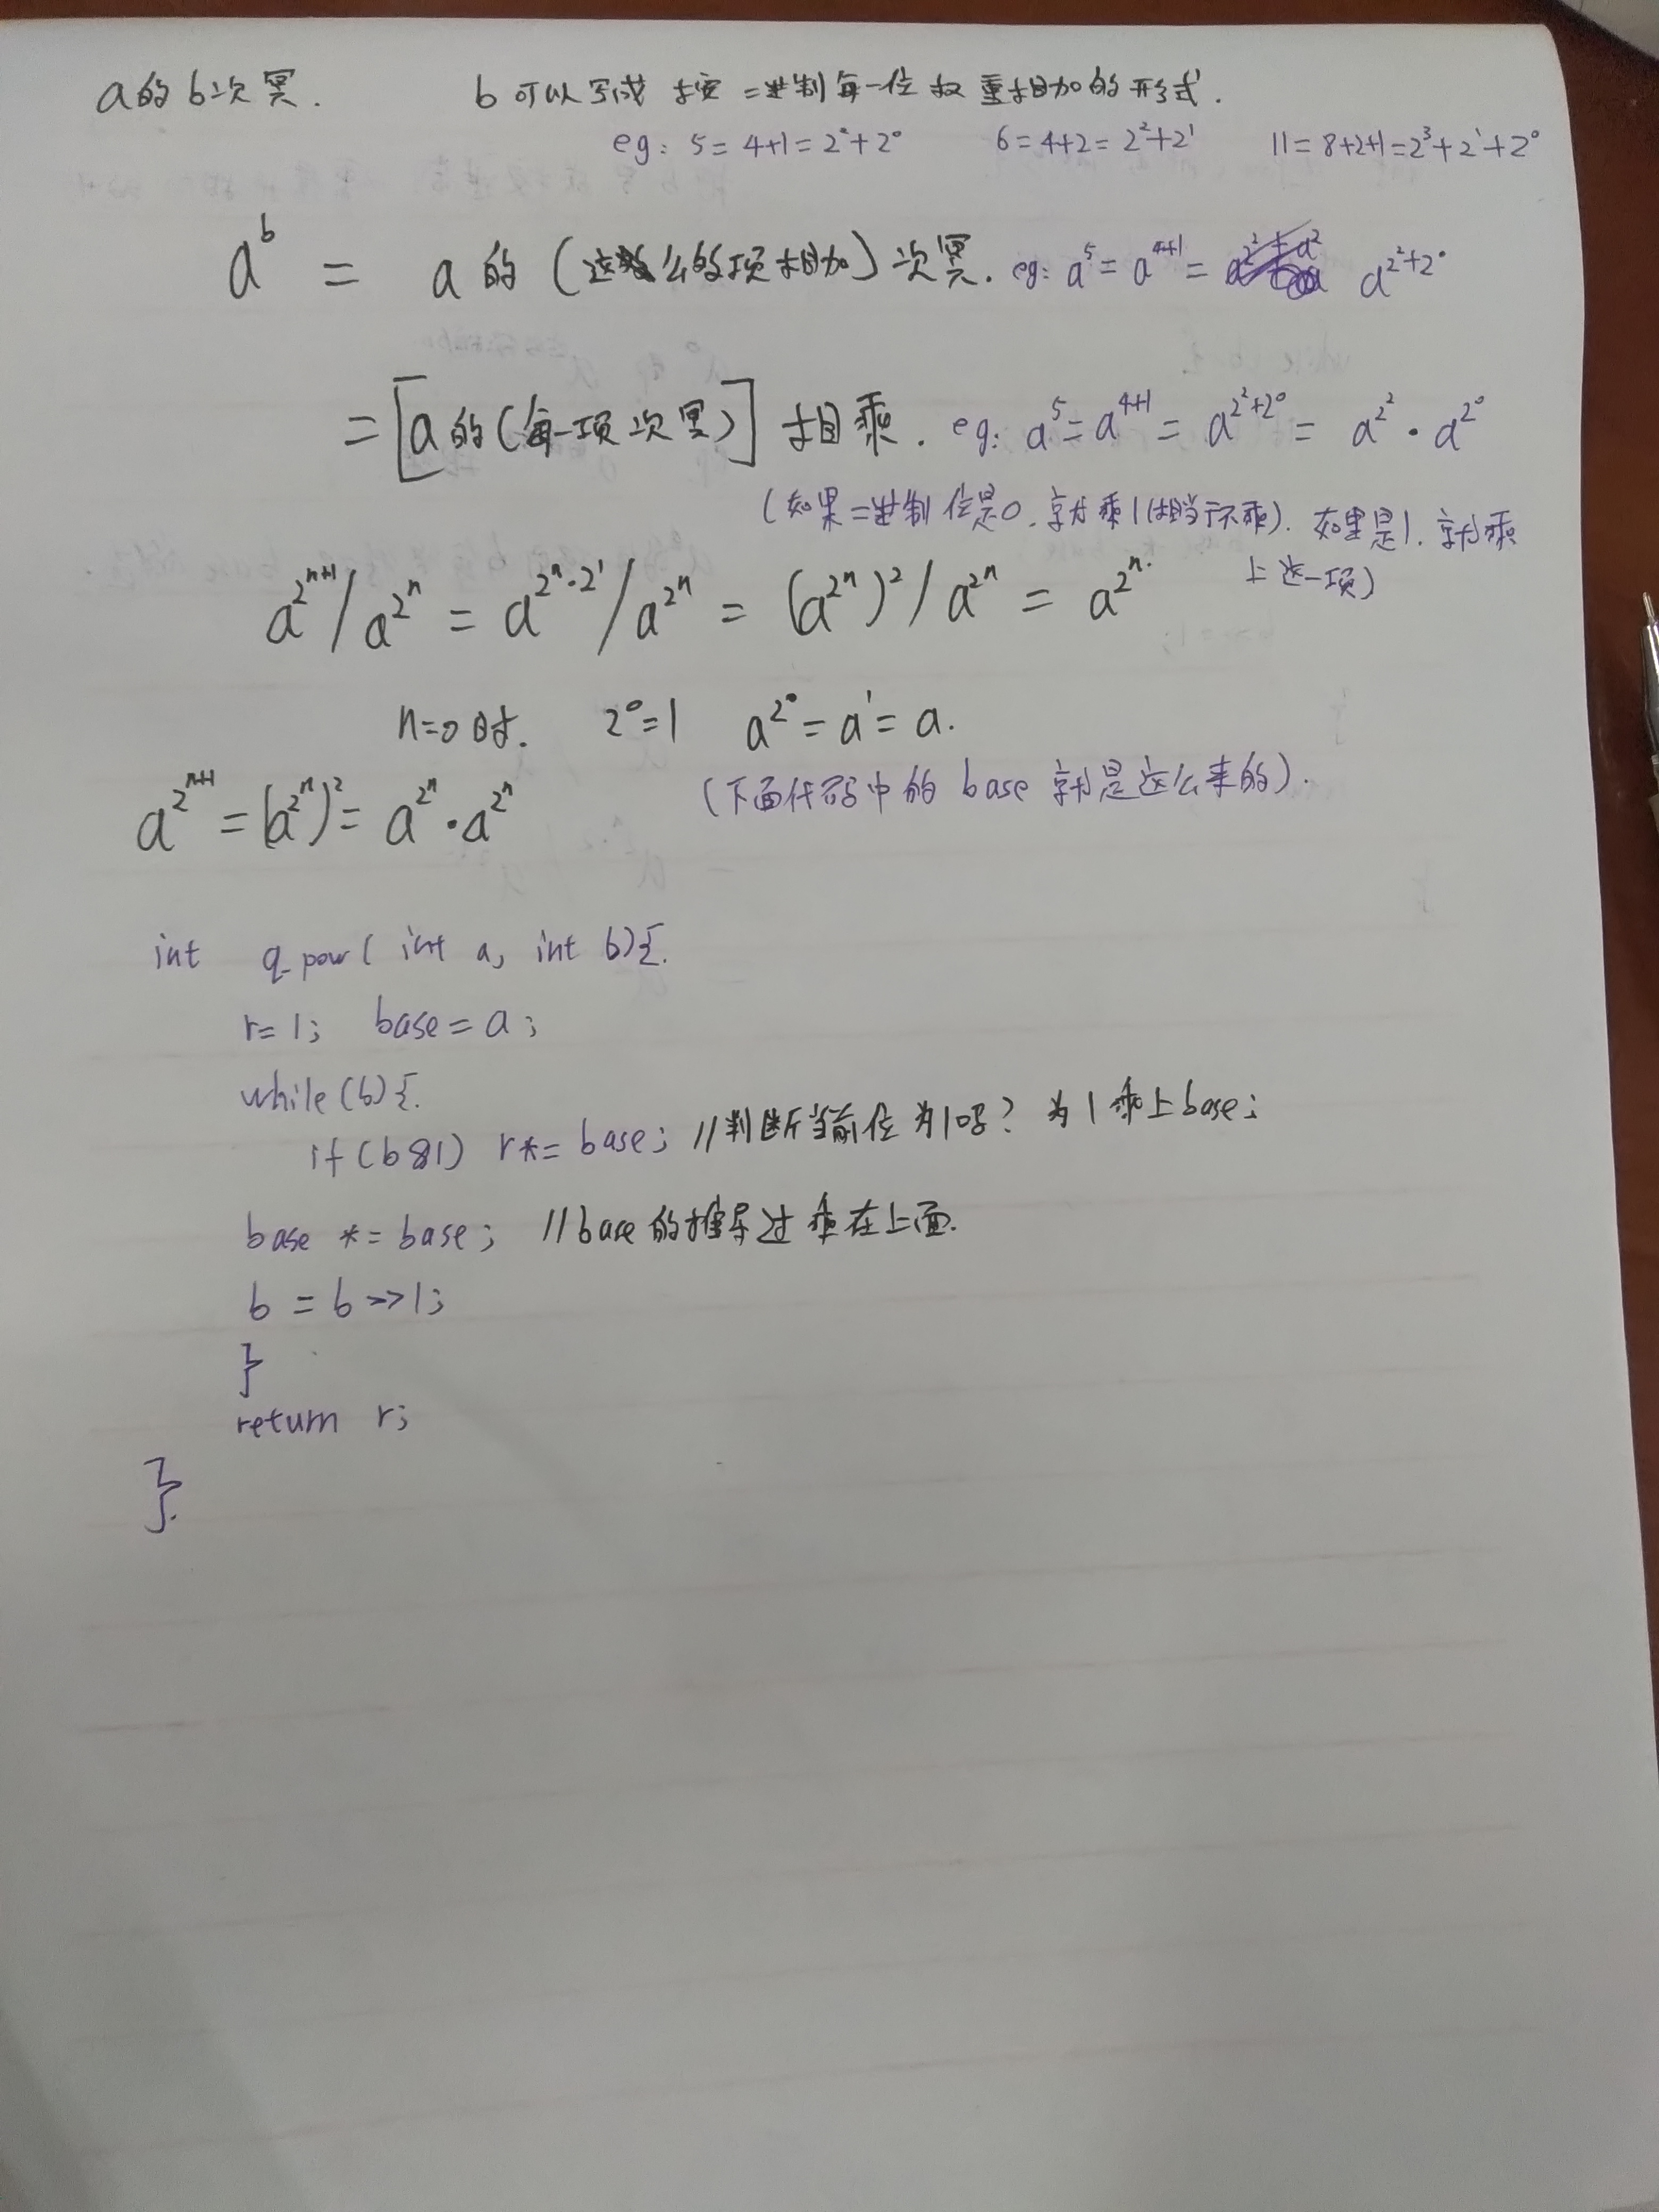 a的b次冥. b可以写成按二进制每一位权重相加的形式.
eg: 5=4+1=2²+2⁰ 6=4+2=2²+2¹ 11=8+2+1=2³+2¹+2⁰
a^b = a的(这么的项相加)次冥. eg: a^5=a^(4+1)= a^(2²+2⁰)
=[a的(每一项次冥)]相乘. eg: a^5=a^(4+1)=a^(2²+2⁰)=a^(2²)·a^(2⁰)
(如果二进制位是0.就乘1(相当于不乘). 如果是1.就乘
上这一项)
a^(2^(n+1))/a^(2^n) = a^(2^n·2¹)/a^(2^n) = (a^(2^n))²/a^(2^n) = a^(2^n).
n=0时. 2⁰=1 a^(2⁰)=a¹=a.
(下面代码中的base就是这么来的).
a^(2^(n+1))=(a^(2^n))²=a^(2^n)·a^(2^n)
int q_pow(int a, int b){.
r=1; base=a;
while(b){.
if(b&1) r*=base; //判断当前位为1吗? 为1乘上base;
base *= base; //base的推导过乘在上面.
b = b>>1;
}
return r;
}.